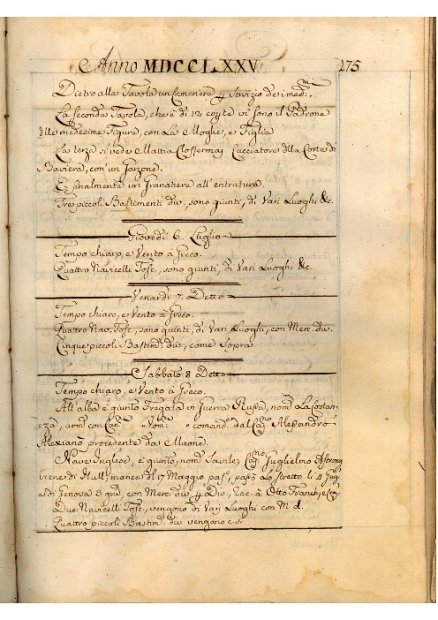 Anno MDCCLXXV. 175
Dietro alla Tavola un Cameriere p. Servizio de i med.mi
La seconda Tavola, che è di 12 coyte vi sono il Padrone
delle medesime Figure, con La Moglie, e Figlia
La terza si vede Mattia Klossermay Cacciatore della Corte di
Baviera, con un Garzone.
E finalmente un Granatiere all'entratura.
Tre piccoli Bastimenti div. sono giunti, di Vari Luoghi &c.
Giovedì 6. Luglio
Tempo chiaro, e Vento à Greco.
Quattro Navicelli Tosc., sono giunti, di Vari Luoghi &c.
Venardì 7. Detto
Tempo chiaro, e Vento à Greco.
Quattro Nav. Tosc., sono giunti, di Vari Luoghi, con Mer. div.
Cinque piccoli Bastim. div., come Sopra
Sabbato 8 Detto
Tempo chiaro, e Vento à Greco.
All'alba è giunto Fregata in Guerra Rusa, nom. La Costan=
za, arm. con Can. Uom. comand. dal Cap.no Alessandro
Alexiano procedente da Maone.
Nave Inglese, è giunto, nom. Cap.no Guglielmo
viene di Hull, manca di 17 Maggio pas., passò Lo stretto li 4 Giug.
di Genova 3 gior. con Merc. div. p. Div., Rac. à Otto Franch e Comp.
Due Navicelli Tosc., vengono di Vari Luoghi con M. d.
Quattro piccoli Bastim. div. vengono c. s.